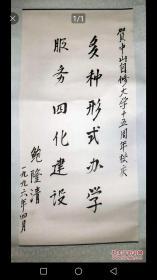 贺中山自修大学十五周年校庆
多种形式办学
服务四化建设
鲍隆清
一九九六年四月